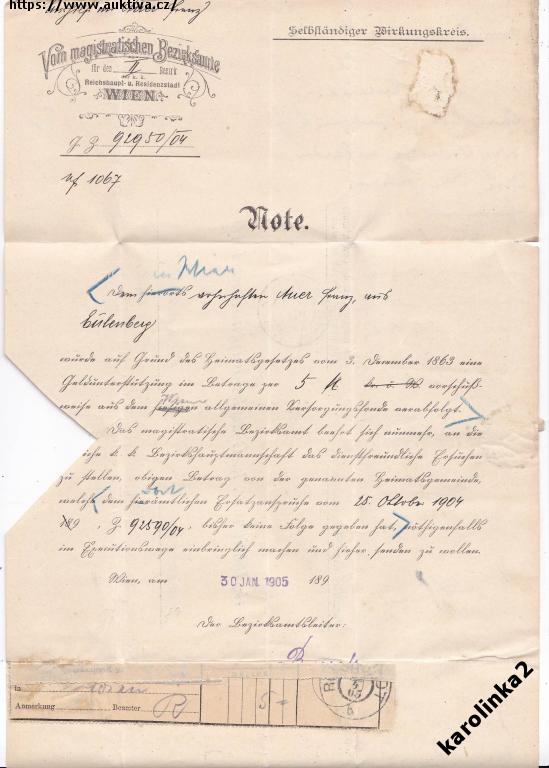 https://www.auktiva.cz/
Selbständiger Wirkungskreis.
Vom magistratischen Bezirksamte
für den II Bezirk
der k. k.
Reichshaupt- u. Residenzstadt
WIEN.
G. Z 92950/04
1067
Note.
in Wien
Dem hierorts wohnhaften Auer Franz, aus
Eulenberg
wurde auf Grund des Heimatsgesetzes vom 3. Dezember 1863 eine
Geldunterstützung im Betrage per 5 K vorschuß-
weise aus dem allgemeinen Versorgungsfonde verabfolgt.
Das magistratische Bezirksamt beehrt sich nunmehr, an die
k. k. Bezirkshauptmannschaft das dienstfreundliche Ersuchen
zu stellen, obigen Betrag von der genannten Heimatsgemeinde,
welche dem hierämtlichen Ersatzanspruche vom 25. Oktober 1904
189 , Z 92590/04, bisher keine Folge gegeben hat, nöthigenfalls
im Executionswege einbringlich machen und hieher senden zu wollen.
Wien, am 30 JAN. 1905 189
Der Bezirksamtsleiter:
in Wien
Anmerkung Beamter
5
karolinka2